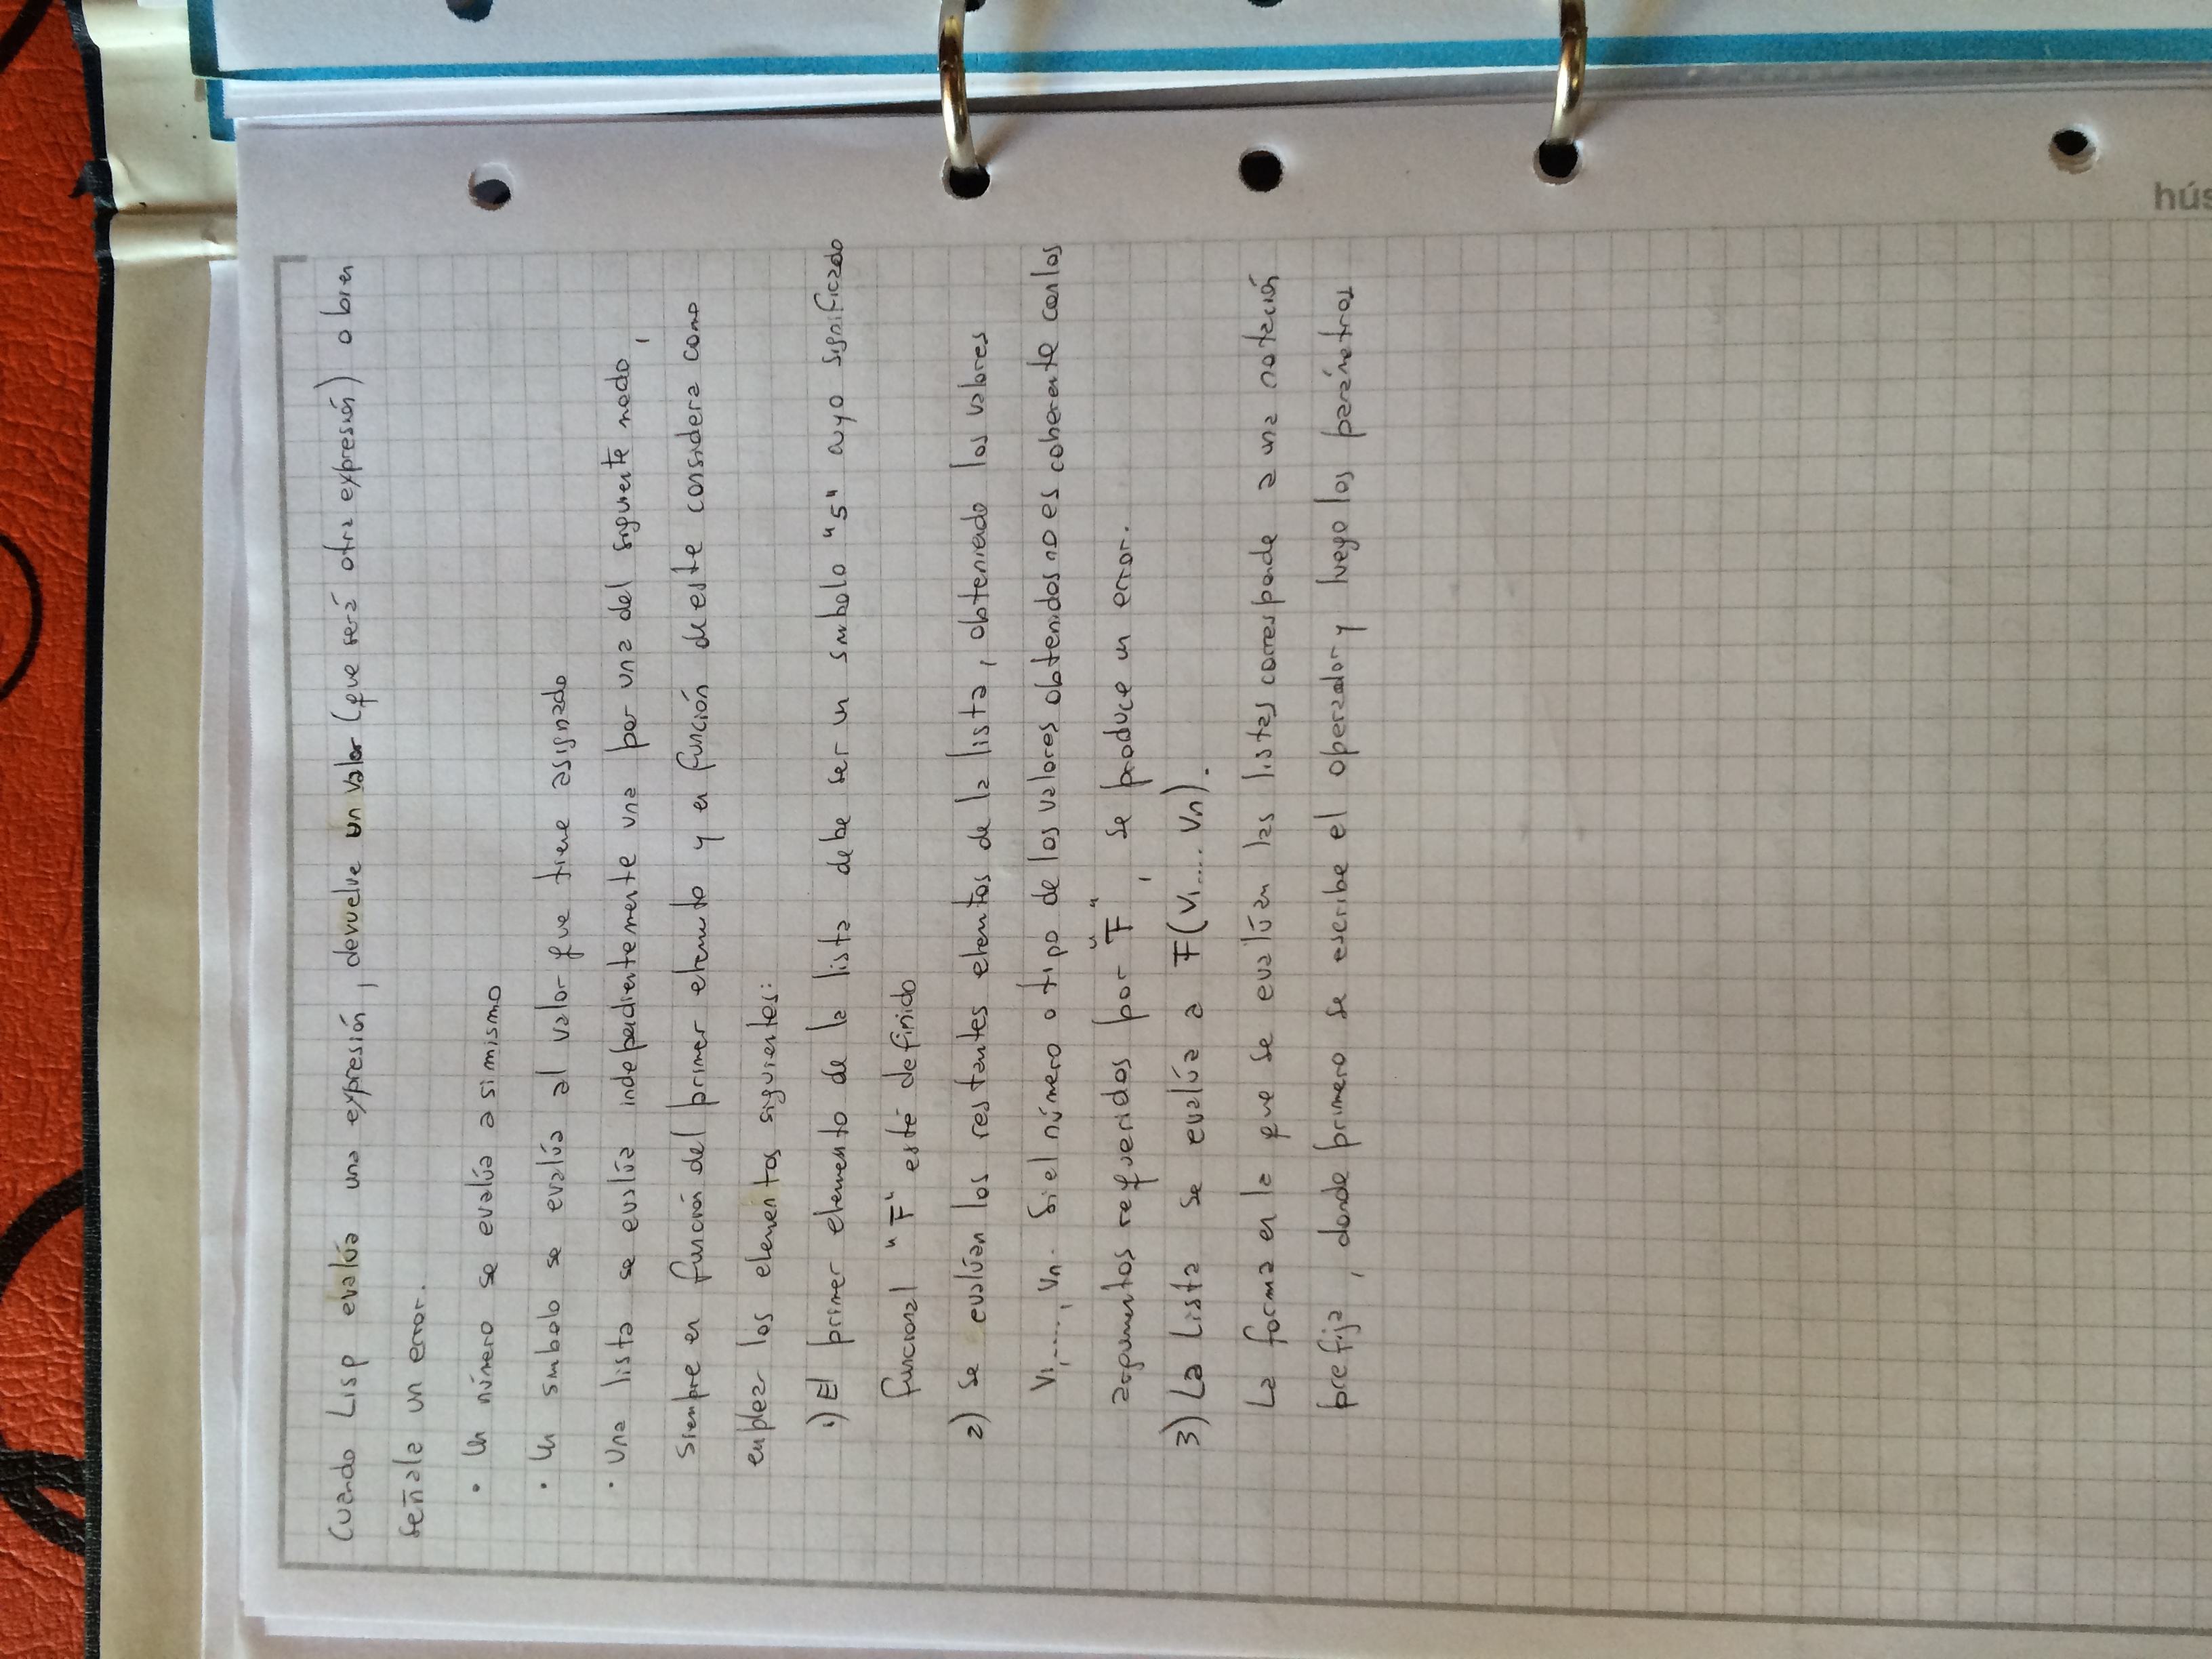 Cuando Lisp evalúa una expresión, devuelve un valor (que será otra expresión) o bien
señala un error.
• Un número se evalúa a simismo
• Un símbolo se evalúa al valor que tiene asignado
• Una lista se evalúa independientemente una por una del siguiente modo,
siempre en función del primer elemento y en función de este considera como
emplear los elementos siguientes:
1) El primer elemento de la lista debe ser un símbolo "S" cuyo significado
funcional "F" esté definido
2) Se evalúan los restantes elentos de la lista, obteniendo los valores
V1,....., Vn. Si el número o tipo de los valores obtenidos no es coherente con los
argumentos requeridos por "F", se produce un error.
3) La Lista se evalúa a F(V1.... Vn).
La forma en la que se evalúan las listas corresponde a una notación
prefija, donde primero se escribe el operador y luego los parámetros
hús